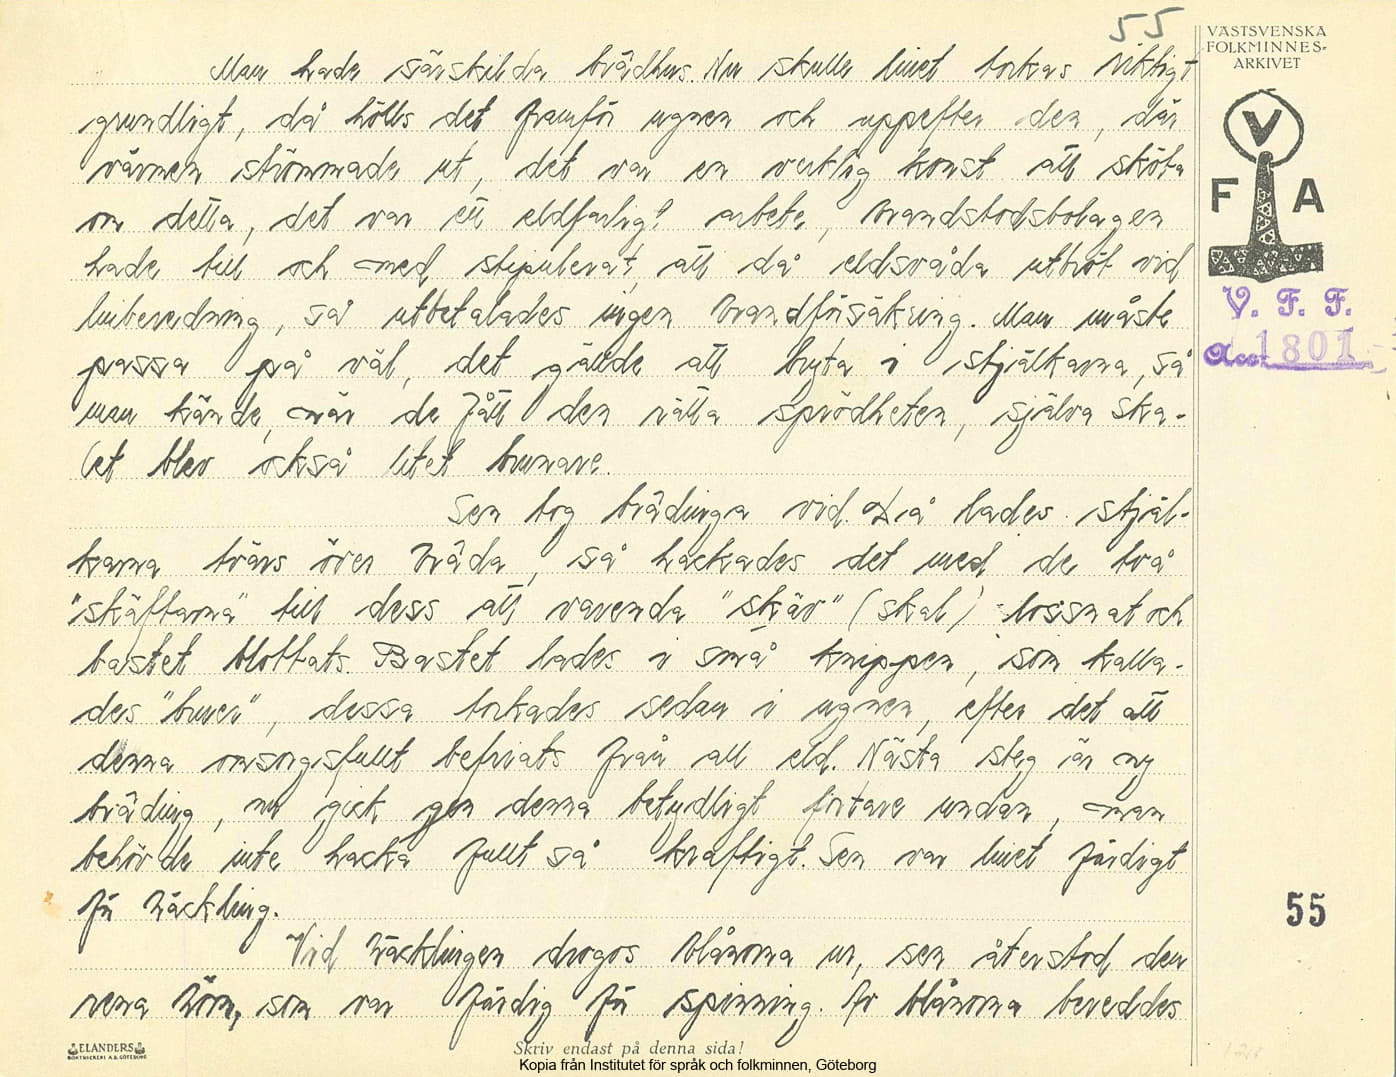 55
VÄSTSVENSKA
FOLKMINNES-
ARKIVET
V
F A
V. F. F.
Acc. 1801
Man hade särskilda brädhus. Nu skulle linet torkas riktigt
grundligt, då hölls det framför ugnen och uppefter den, där
värmen strömmade ut, det var en verklig konst att sköta
om detta, det var ett eldfarligt arbete, brandstodsbolagen
hade till och med stipulerat, att då eldsvåda utbröt vid
linberedning, så utbetalades ingen brandförsäkring. Man måste
passa på väl, det gällde att bryta i stjälkarna, så
man kände, när de fått den rätta sprödheten, själva ska-
let blev också litet brunare.
Sen tog brädinga vid. Då lades stjäl-
karna tvärs över bråda, så hackades det med de två
"skäftarna" till dess att varenda "skäv" (skal) lossnat och
bastet blottats. Bastet lades i små knippen, som kalla-
des "buner", dessa torkades sedan i ugnen, efter det att
denna omsorgsfullt befriats från all eld. Nästa steg är ny
bräding, nu gick gen denna betydligt fortare undan, man
behövde inte hacka fullt så kraftigt. Sen var linet färdigt
för häckling.
Vid häcklingen drogos blånorna ur, sen återstod den
rena hörn, som var färdig för spinning. Av blånorna bereddes
55
ELANDERS
BOKTRYCKERI A.B. GÖTEBORG
Skriv endast på denna sida!
Kopia från Institutet för språk och folkminnen, Göteborg